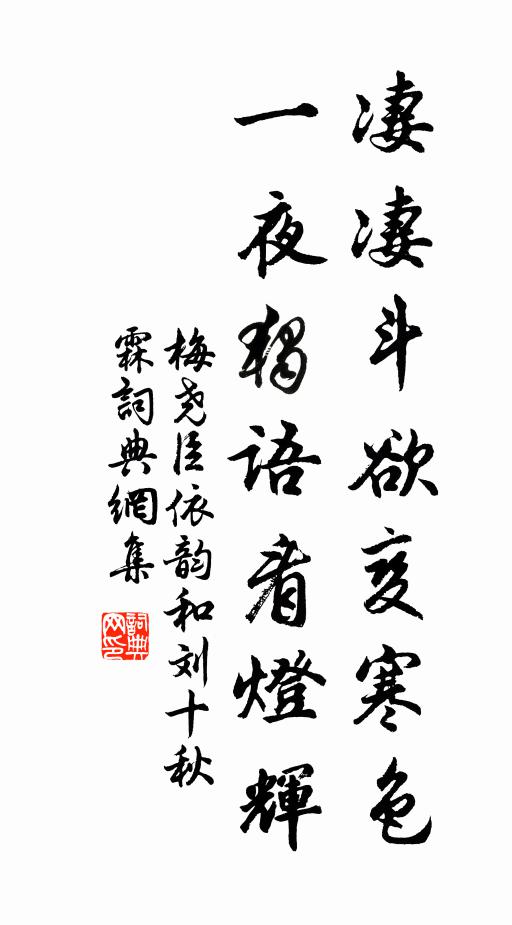 凄凄斗欲变寒色
一夜獨语看燈輝
梅尧臣依韵和刘十秋
霖詞典網集
詞典網印